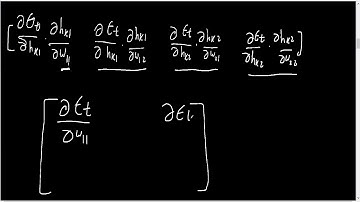 [∂Et/∂hk1 · ∂hk1/∂w11 ∂Et/∂hk1 · ∂hk1/∂w12 ∂Et/∂hk2 · ∂hk2/∂w11 ∂Et/∂hk2 · ∂hk2/∂w22]
[∂Et/∂w11 ∂Et]